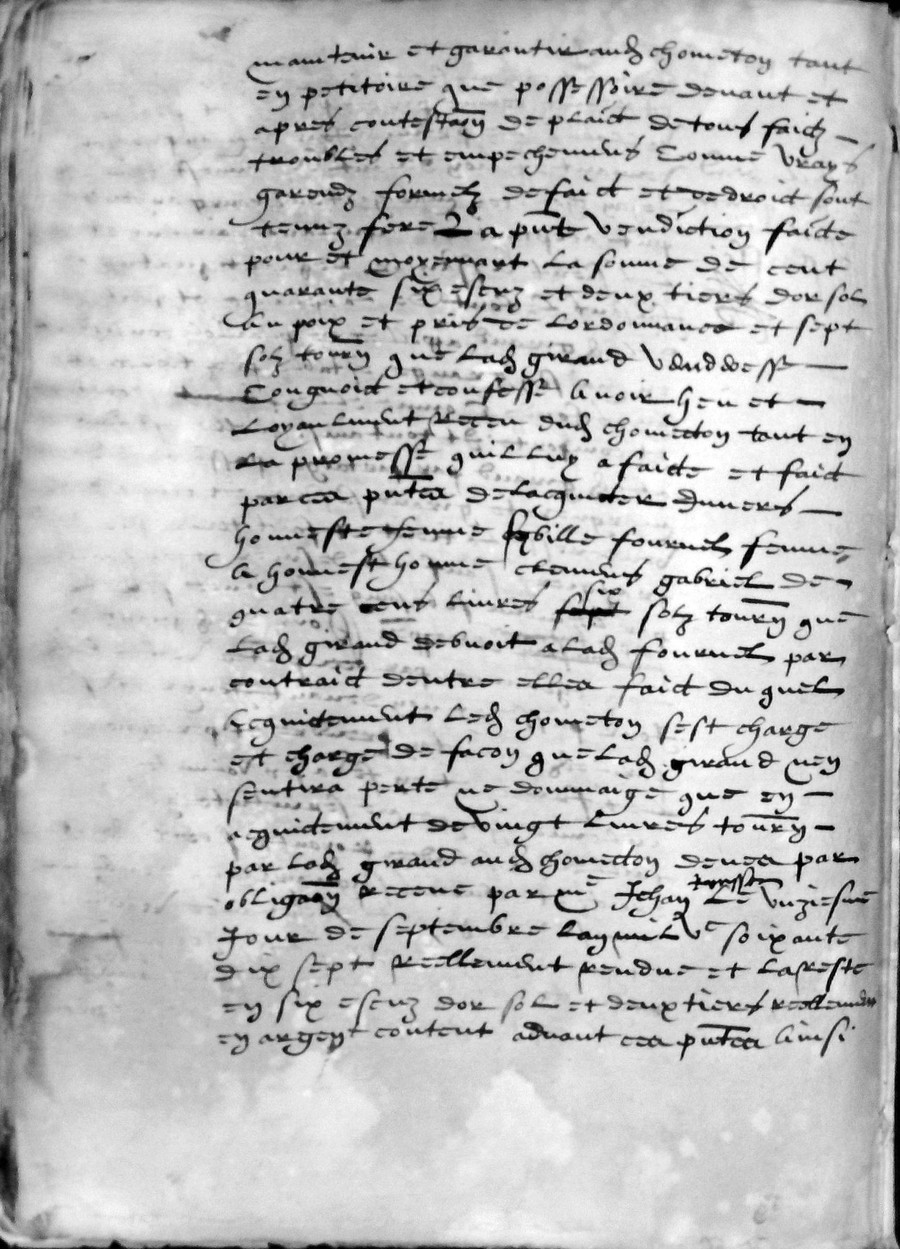 maintenir et garantir aud chometon tant
en petitoire que possessoire devant et
apres contestaon de plaict de tous faictz
troubles et empechemens Comme vrays
garendz formelz de faict et de droict sont
tenuz fere La pnte vendiction faicte
pour et moyennant la somme de cent
quarante six escuz et deux tiers dor sol
au poix et pris de lordonnance et sept
solz tourn que lad girand venderesse
Congnoict et confesse avoir heu et
Loyaulment receu dud chometton tant en
La promesse quil luy a faicte et faict
par ces pntes de lacquicter envers
honneste femme Sybille fournel femme
a honnest homme clemens gabriel de
quatre cens livres sept six solz tourn que
Lad girand debvoit a lad fournel par
contraict dentre elles faict duquel
acquictement led chometon sest charge
et charge de facon que lad girand nen
sentira perte ne dommaige que en
acquictement de vingt livres tourn
par lad girand aud chometton deues par
obligaon receue par me Jehan Le unziesme
Jour de septembre lan mil vc soixante
dix sept Reellement rendue et la reste
en six escuz dor sol et deux tiers reellement
en argent content advant ces pntes ainsi